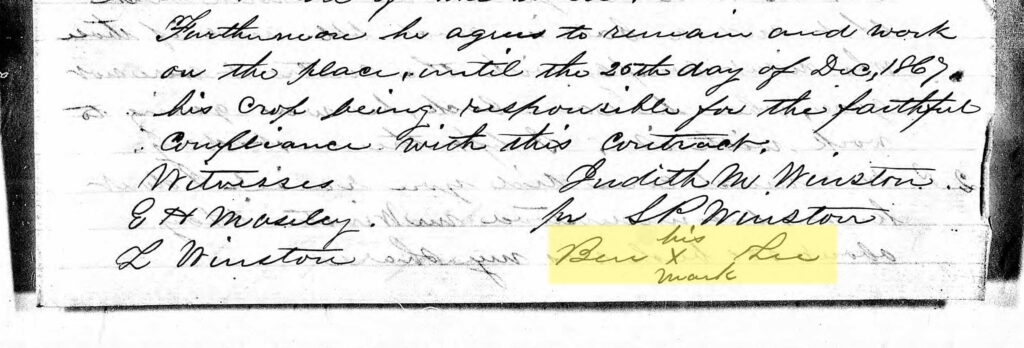 Furthermore he agrees to remain and work
on the place, until the 25th day of Dec, 1867,
his crop being responsible for the faithful
compliance with this contract.
Witnesses Judith M. Winston
E H Moseley. pr S P Winston
L Winston Ben his X mark Lee